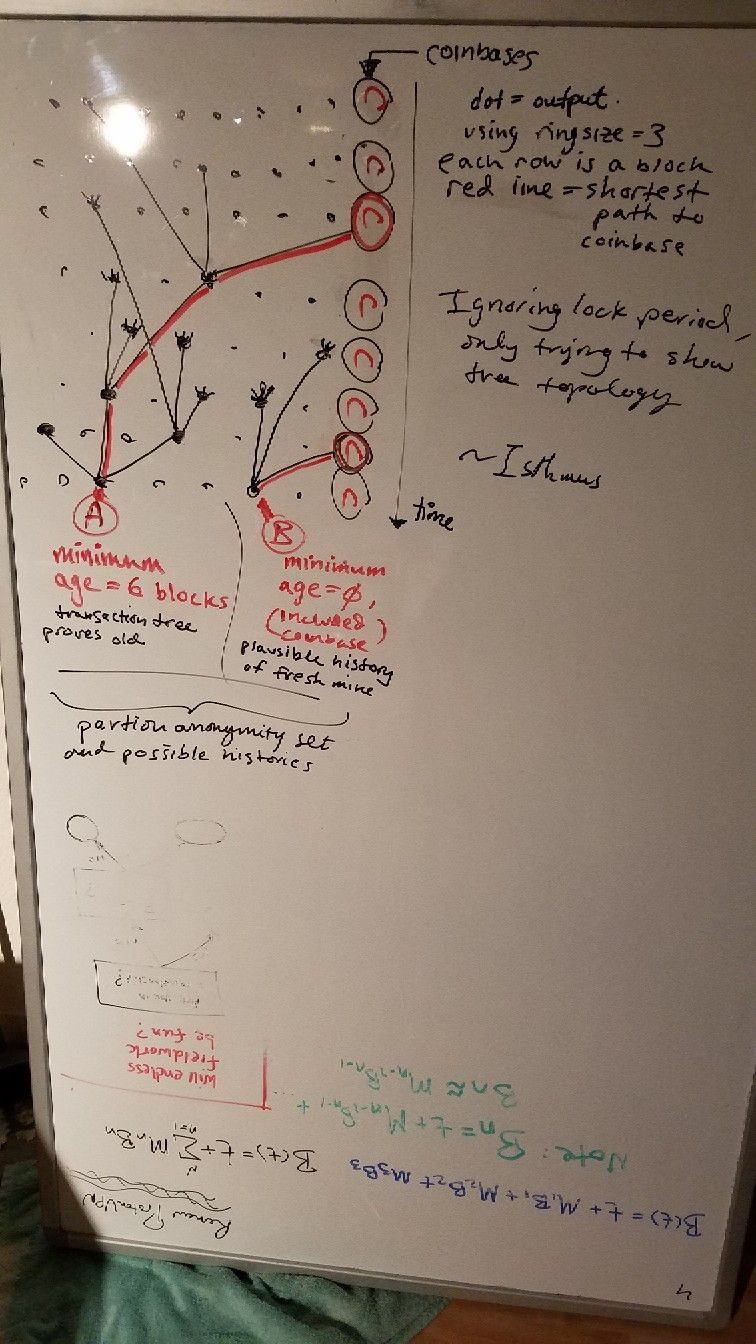 coinbases
dot = output.
using ringsize = 3
each row is a block
red line = shortest
path to
coinbase
C
C
C
C
C
C
C
C
Ignoring lock period,
only trying to show
tree topology
~ Isthmus
time
A
B
minimum
age = 6 blocks
transaction tree
proves old
minimum
age = ϕ,
(includes
coinbase)
plausible history
of fresh mine
partion anonymity set
and possible histories
B(t) = t + M₁B₁ + M₂B₂ + M₃B₃
Note: Bn = t + Mn-1Bn-1 + ...
Bn ≈ Mn-1Bn-1
B(t) = t + Σ MnBn
N
n=1
will endless
fieldwork
be fun?